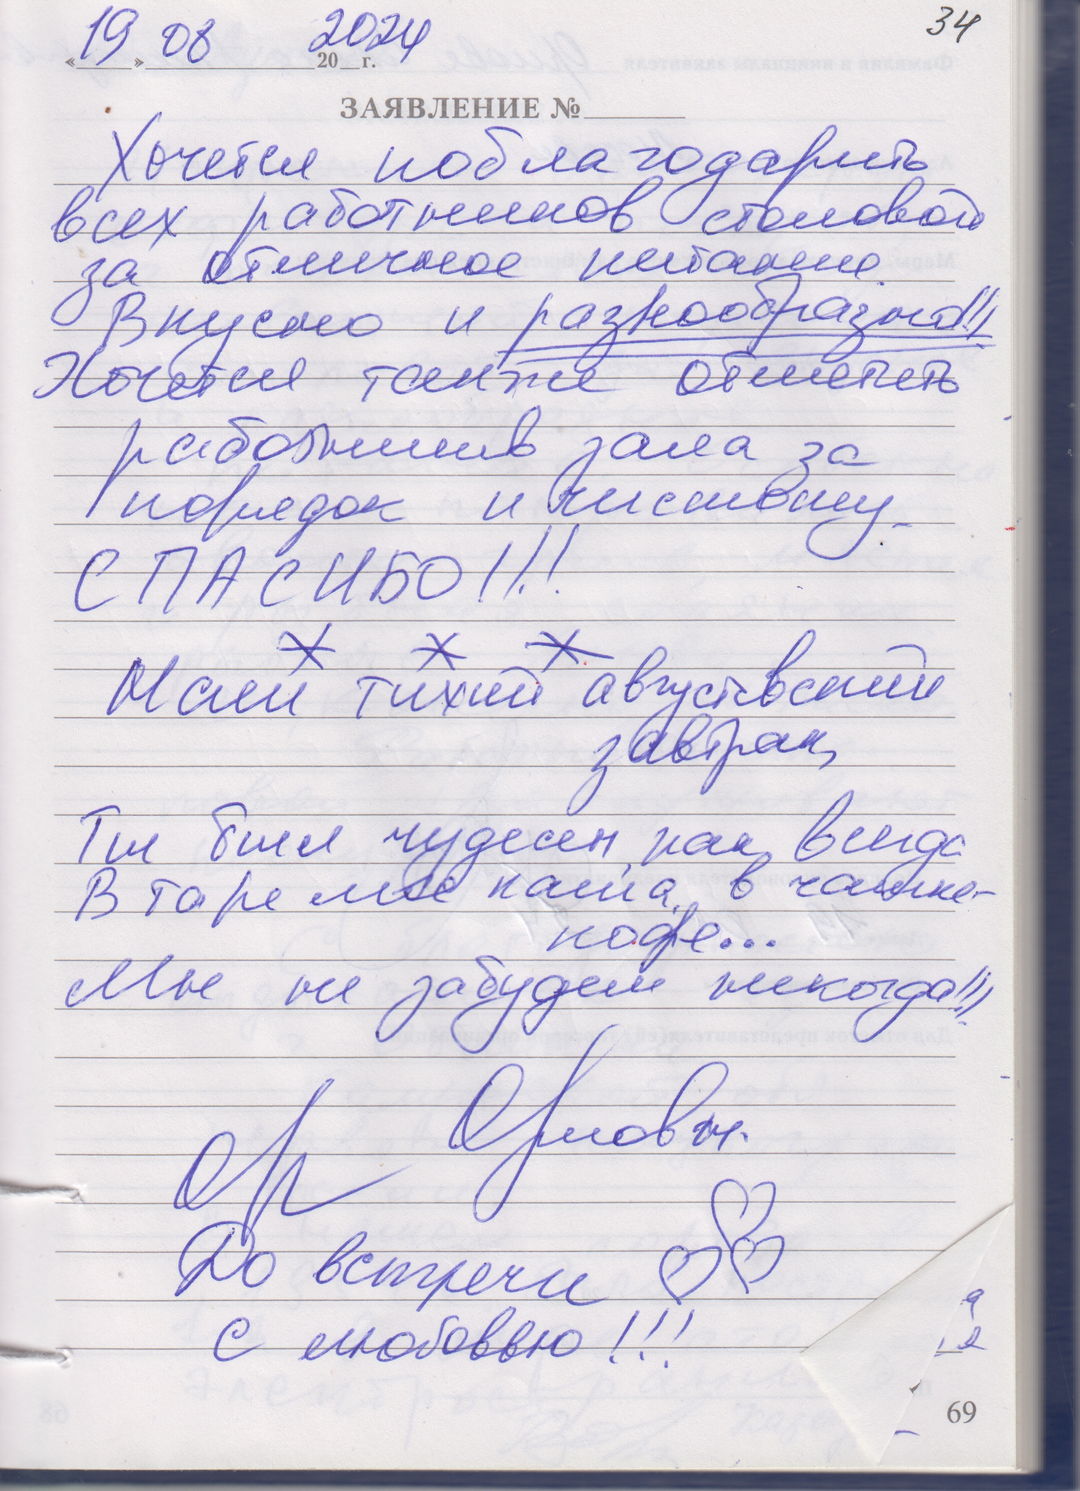 34
19 08 2024
« » 20 г.
ЗАЯВЛЕНИЕ №
Хочется поблагодарить
всех работников столовой
за отличное питание
Вкусно и разнообразно!!!
Хочется также отметить
работников зала за
порядок и чистоту.
СПАСИБО!!!
* * *
Наш тихий августовский
завтрак,
Ты был чудесен, как всегда
В тарелке каша, в чашке-
кофе...
Мы не забудем никогда!!!
Орловы.
До встречи
С любовью!!!
69